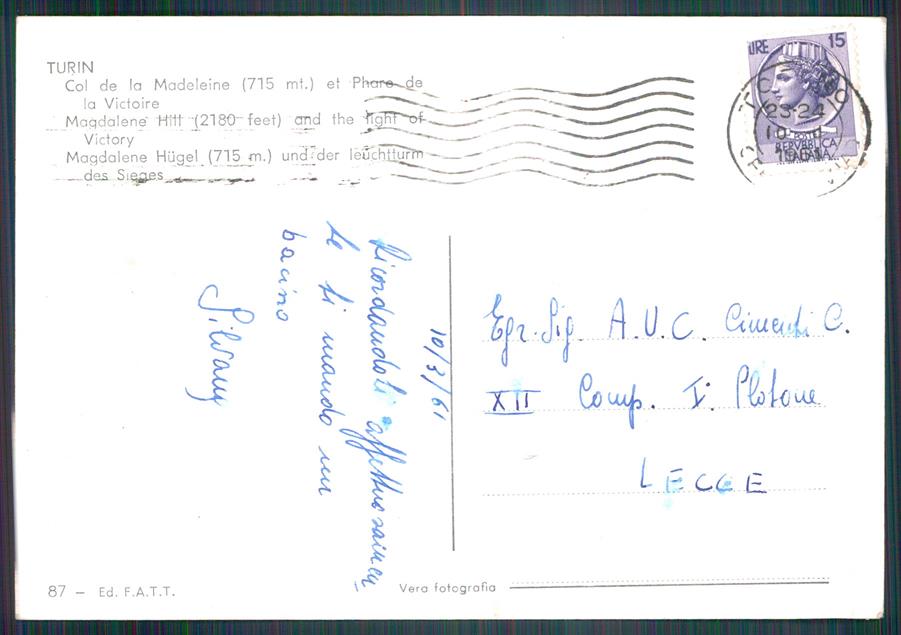 TURIN
Col de la Madeleine (715 mt.) et Phare de
la Victoire
Magdalene Hill (2180 feet) and the light of
Victory
Magdalene Hügel (715 m.) und der leuchtturm
des Sieges
LIRE 15
23-24
10
1961
REPVBBLICA
ITALIANA
10/3/61
Ricordandoti affettuosamen
te ti mando un
bacino
Silvana
Egr. Sig. A.U.C. Cimenti C.
XII Comp. I. Plotone
LECCE
87 — Ed. F.A.T.T.
Vera fotografia